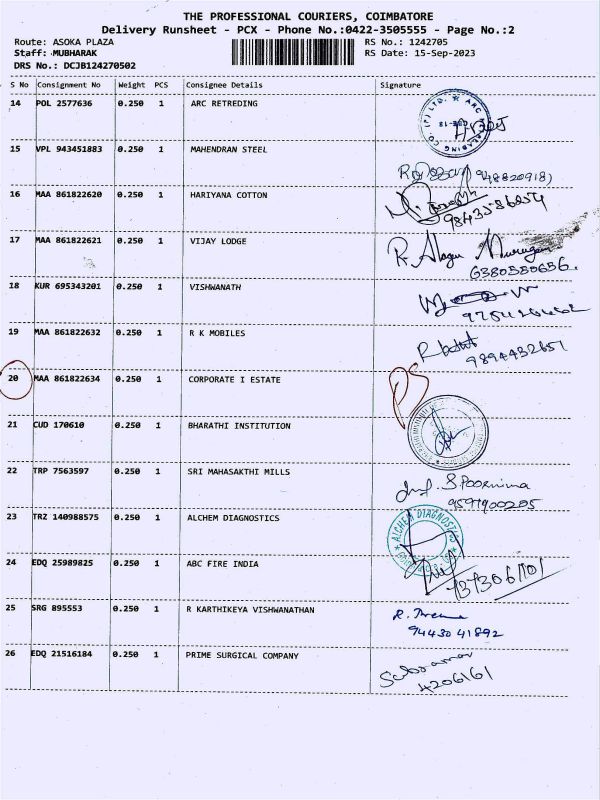 THE PROFESSIONAL COURIERS, COIMBATORE
Delivery Runsheet - PCX - Phone No.:0422-3505555 - Page No.:2
Route: ASOKA PLAZA RS No.: 1242705
Staff: MUBHARAK RS Date: 15-Sep-2023
DRS No.: DCJB124270502
S No Consignment No Weight PCS Consignee Details Signature
14 POL 2577636 0.250 1 ARC RETREDING
15 VPL 943451883 0.250 1 MAHENDRAN STEEL
16 MAA 861822620 0.250 1 HARIYANA COTTON
17 MAA 861822621 0.250 1 VIJAY LODGE R. Alagu Murugan
6380580656.
18 KUR 695343201 0.250 1 VISHWANATH
19 MAA 861822632 0.250 1 R K MOBILES
9894432651
20 MAA 861822634 0.250 1 CORPORATE I ESTATE
21 CUD 170610 0.250 1 BHARATHI INSTITUTION
22 TRP 7563597 0.250 1 SRI MAHASAKTHI MILLS S.Poornima
9597900205
23 TRZ 140988575 0.250 1 ALCHEM DIAGNOSTICS ALCHEM DIAGNOSTICS
24 EDQ 25989825 0.250 1 ABC FIRE INDIA
25 SRG 895553 0.250 1 R KARTHIKEYA VISHWANATHAN
9443041892
26 EDQ 21516184 0.250 1 PRIME SURGICAL COMPANY
4206161